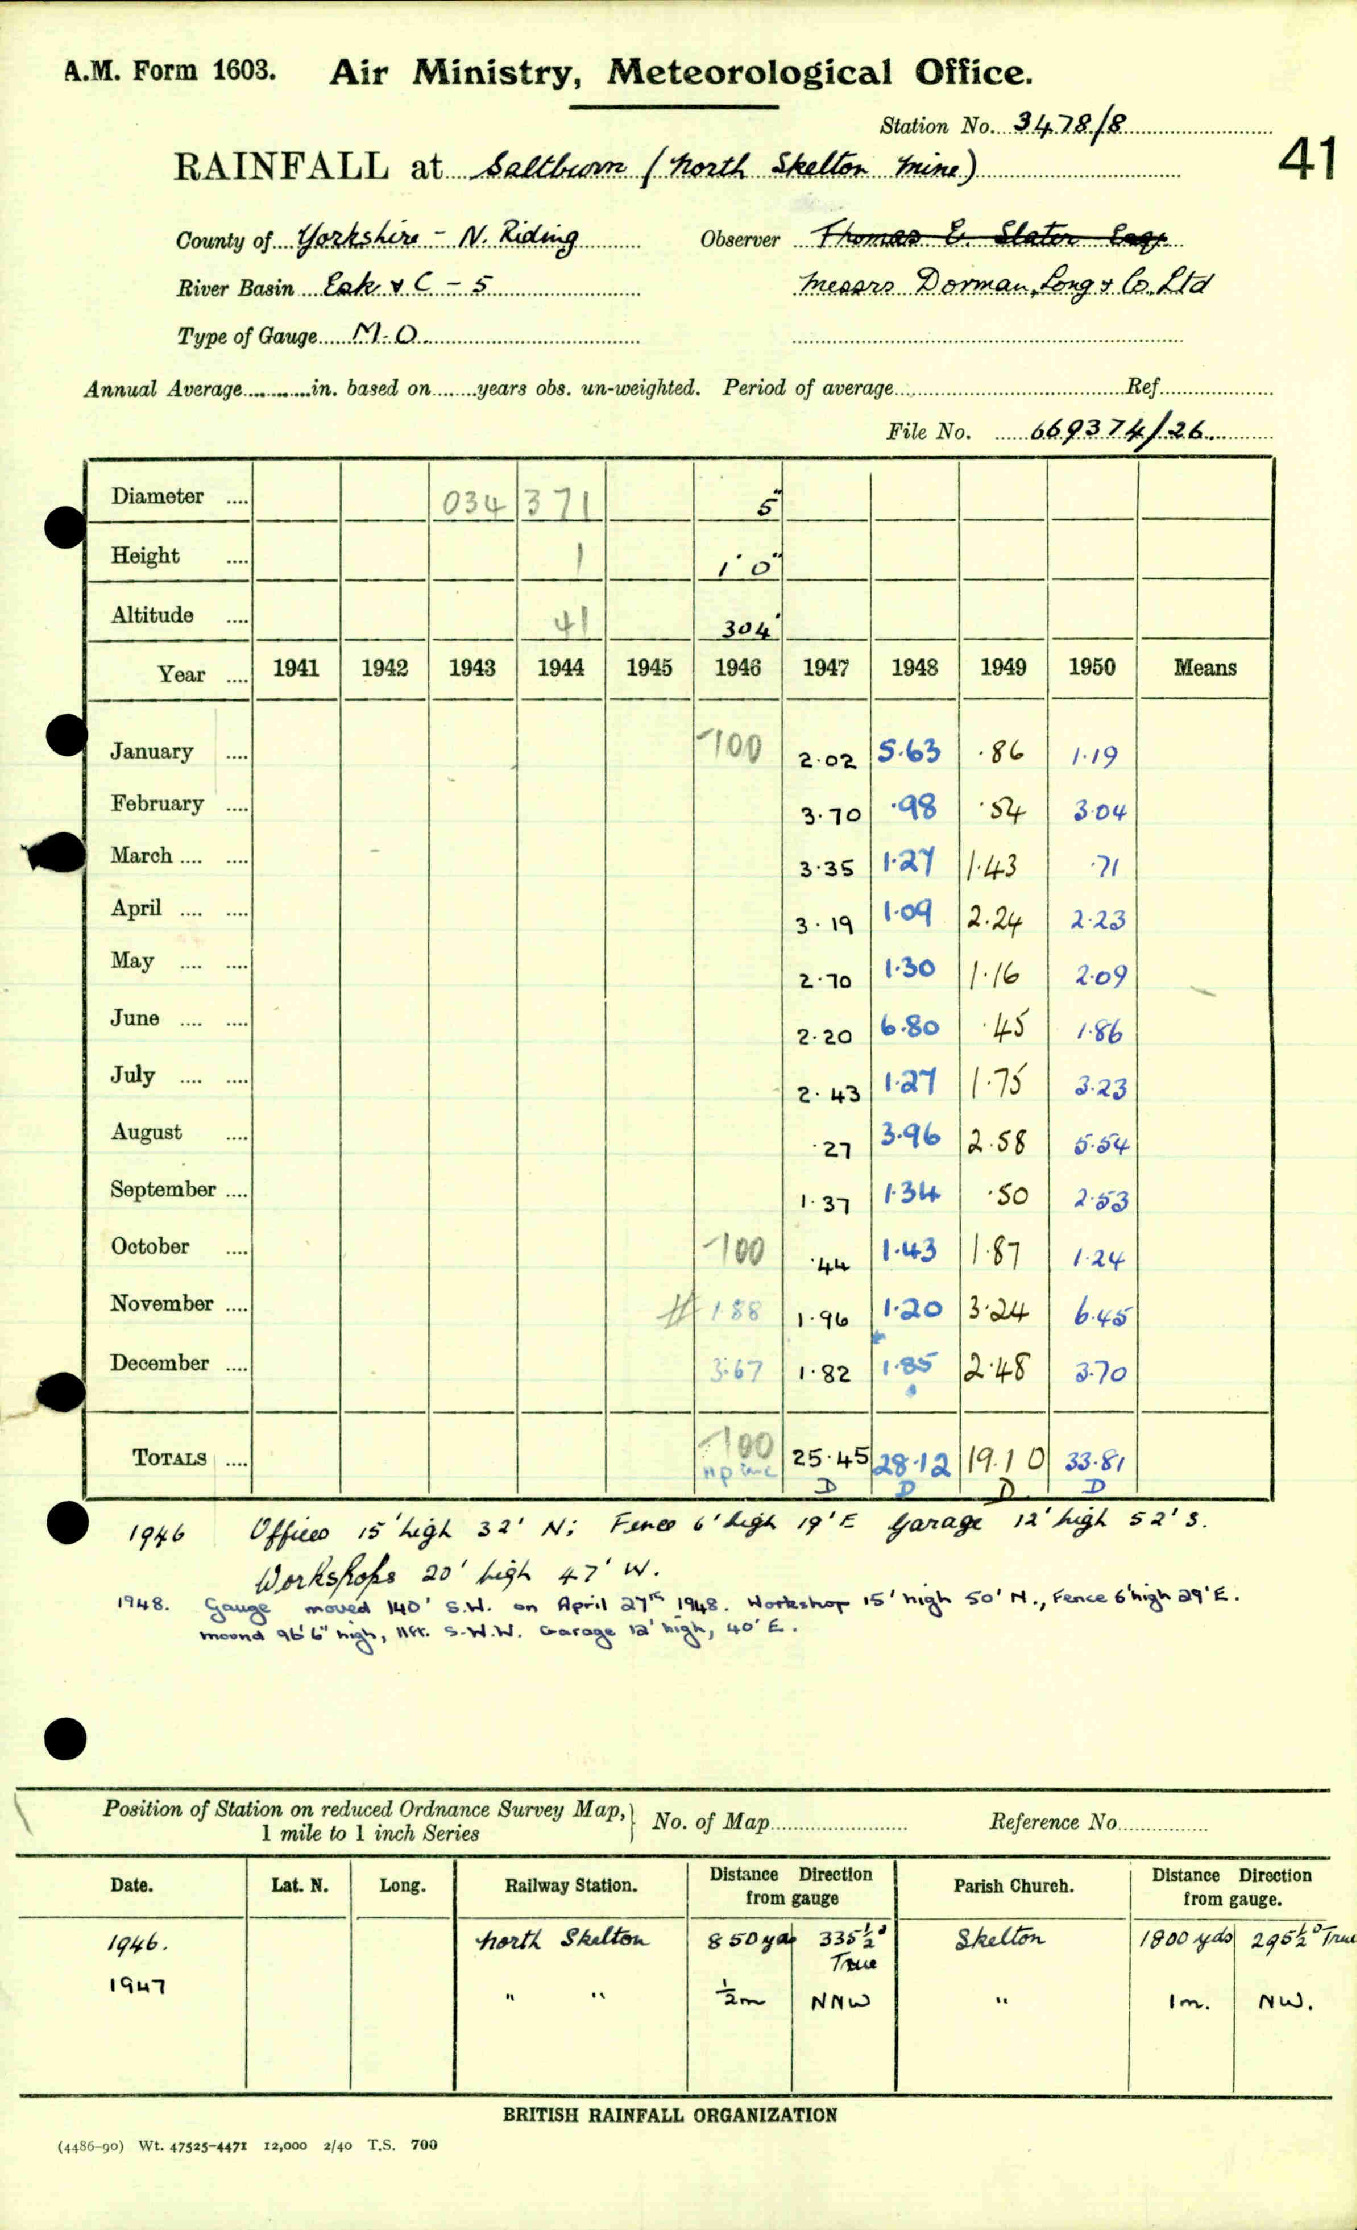 A.M. Form 1603. Air Ministry, Meteorological Office.
Station No. 3478/8
RAINFALL at Saltburn (North Skelton Mine) 41
County of Yorkshire - N. Riding Observer Thomas E. Slater Esq.
River Basin Esk & C - 5 Messrs Dorman, Long & Co. Ltd
Type of Gauge M.O.
Annual Average in. based on years obs. un-weighted. Period of average Ref
File No. 669374/26.
Diameter 034 371 5"
Height 1 1' 0"
Altitude 41 304'
Year 1941 1942 1943 1944 1945 1946 1947 1948 1949 1950 Means
January -100 2.02 5.63 .86 1.19
February 3.70 .98 .54 3.04
March 3.35 1.27 1.43 .71
April 3.19 1.09 2.24 2.23
May 2.70 1.30 1.16 2.09
June 2.20 6.80 .45 1.86
July 2.43 1.27 1.75 3.23
August .27 3.96 2.58 5.54
September 1.37 1.34 .50 2.53
October -100 .44 1.43 1.87 1.24
November # 1.88 1.96 1.20 3.24 6.45
December 3.67 1.82 1.85 2.48 3.70
TOTALS -100 25.45 28.12 19.10 33.81
D D D D
1946 Offices 15' high 32' N; Fence 6' high 19' E Garage 12' high 52' S.
Workshops 20' high 47' W.
1948. Gauge moved 140' S.W. on April 27th 1948. Workshop 15' high 50' N., Fence 6' high 29' E.
mound 96'6" high, 11ft. S.W.W. Garage 12' high, 40' E.
Position of Station on reduced Ordnance Survey Map, 1 mile to 1 inch Series } No. of Map Reference No.
Date. Lat. N. Long. Railway Station. Distance Direction from gauge Parish Church. Distance Direction from gauge.
1946. North Skelton 850 yds 335½° True Skelton 1800 yds 295½° True
1947 " " ½m NNW " 1m. NW.
BRITISH RAINFALL ORGANIZATION
(4486-90) Wt. 47525-4471 12,000 2/40 T.S. 700